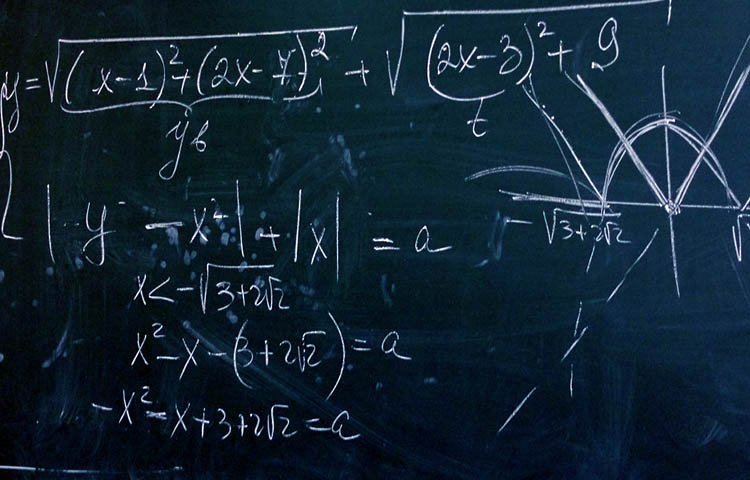 y = √((x-1)²+(2x-7)²) + √((2x-3)²+9)
t
|y - x²| + |x| = a
-√(3+2√2)
x < -√(3+2√2)
x² - x - (3+2√2) = a
-x² - x + 3+2√2 = a